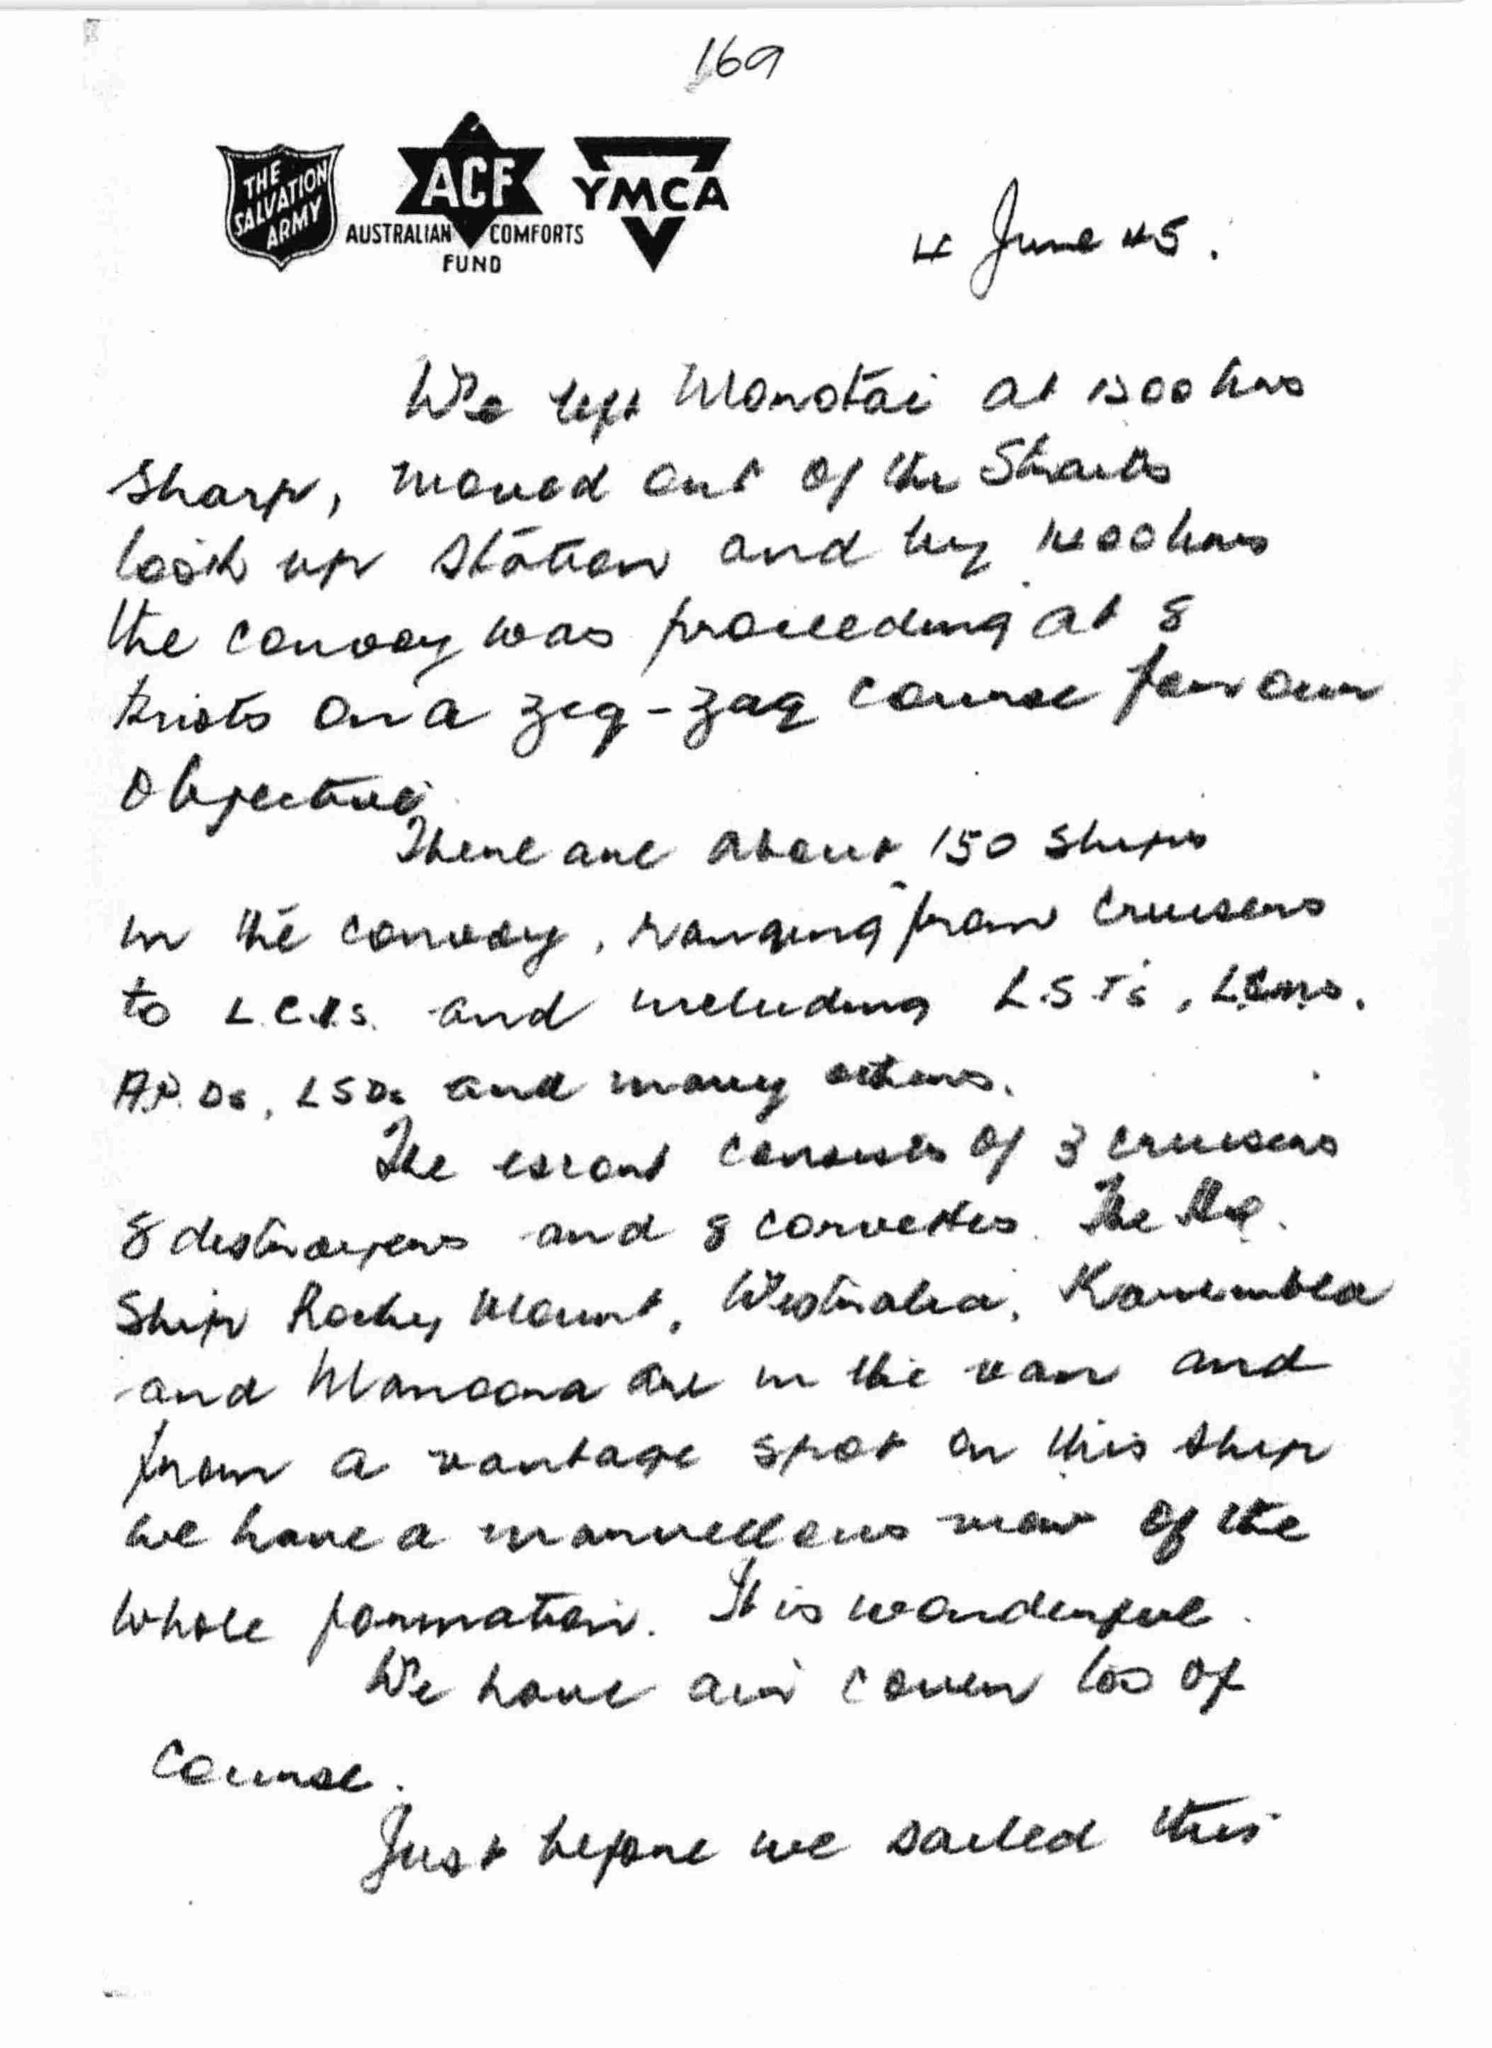 169
THE
SALVATION
ARMY
ACF
AUSTRALIAN COMFORTS
FUND
YMCA
4 June 45.
We left Morotai at 1300 hrs
sharp, moved out of the Straits
took up station and by 1400 hrs
the convoy was proceeding at 8
knots on a zig-zag course for our
objective.
There are about 150 ships
in the convoy, ranging from cruisers
to L.C.I.s. and including L.S.T's, LCMs.
A.P.Ds, LSDs and many others.
The escort consists of 3 cruisers
8 destroyers and 8 corvettes. The HQ.
Ship Rocky Mount, Westralia, Kanimbla
and Manoora are in the van and
from a vantage spot on this ship
we have a marvellous view of the
whole formation. It is wonderful.
We have air cover too of
course.
Just before we sailed this